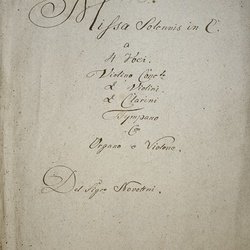 Missa Solennis in C.
a
4 Voci.
Violino Conc:to
2 Violini.
2 Clarini
Tympano
Con
Organo e Violone.
Del Sigre Novotni.